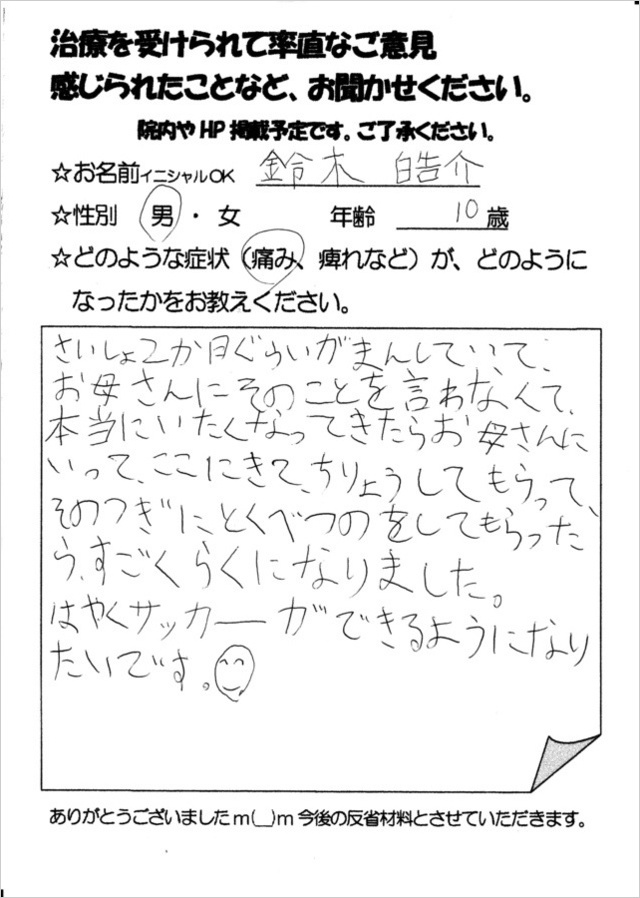 治療を受けられて率直なご意見
感じられたことなど、お聞かせください。
院内やHP掲載予定です。ご了承ください。
☆お名前イニシャルOK 鈴木 皓介
☆性別 男・女 年齢 10歳
☆どのような症状（痛み、痺れなど）が、どのように
なったかをお教えください。
さいしょ2か月ぐらいがまんしていて、
お母さんにそのことを言わなくて、
本当にいたくなってきたらお母さんに
いって、ここにきて、ちりょうしてもらって、
そのつぎにとくべつのをしてもらった
ら、すごくらくになりました。
はやくサッカーができるようになり
たいです。
ありがとうございましたm(__)m今後の反省材料とさせていただきます。